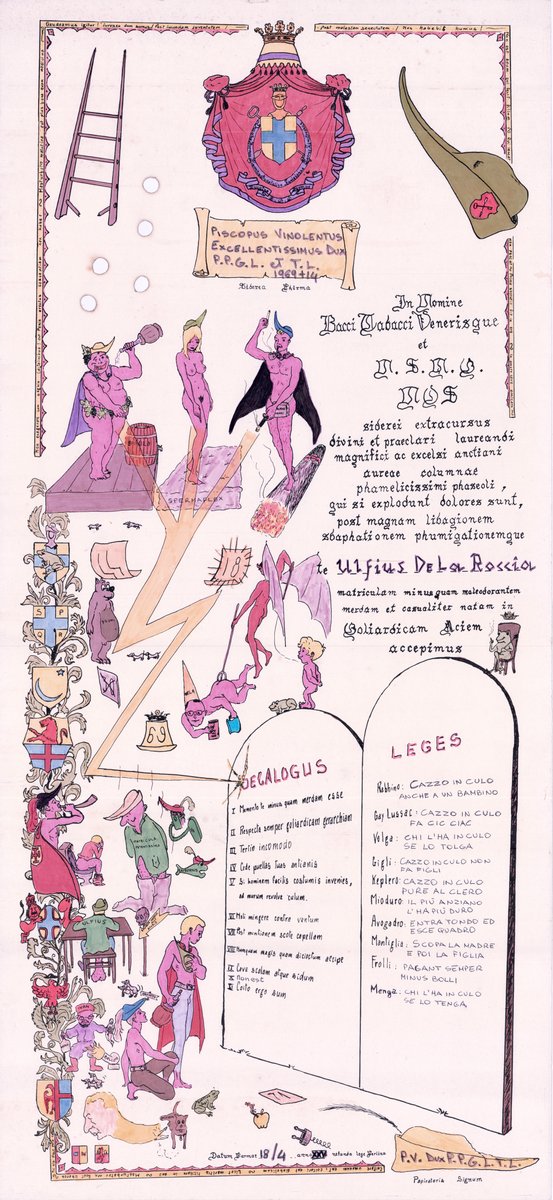 Gaudeamus igitur
Post molestam senectutem / Nos habebit humus /
PISCOPUS VINOLENTUS
EXCELLENTISSIMUS DUX
P.P.G.L. ET T.L.
1969+14
Siderea Phirma
In Nomine
Bacci Tabacci Venerisque
et
N.S.M.G.
NOS
siderei extracursus
divini et praeclari laureandi
magnifici ac excelsi anctiani
aureae columnae
phamelicissimi phaseoli,
qui si explodunt dolores sunt,
post magnam libagionem
sbaphationem phumigationemque
te Ulfius De La Roccia
matriculam minus quam maleodorantem
merdam et casualiter natam in
Goliardicam Aciem
accepimus
SPERMAFLEX
18
S P
Q R
69
DECALOGUS
I Memento te minus quam merdam esse
II Respecta semper goliardicam gerarchiam
III Tertio incomodo
IV Cede puellas tuas antianis
V Si hominem facilis costumis invenies,
ad murum revolve culum.
VI Noli mingere contra ventum
VII Post mintionem scote capellam
VIII Nunquam magis quam diciottum accipe
IX Cave scolam atque acidum
X Nonest
XI Coito ergo sum
LEGES
Rabbino: CAZZO IN CULO
ANCHE A UN BAMBINO
Gay Lussac: CAZZO IN CULO
FA CIC CIAC
Volga: CHI L'HA IN CULO
SE LO TOLGA
Gigli: CAZZO IN CULO NON
FA FIGLI
Keplero: CAZZO IN CULO
PURE AL CLERO
Mioduro: IL PIÙ ANZIANO
L'HA PIÙ DURO
Avogadro: ENTRA TONDO ED
ESCE QUADRO
Montiglio: SCOPA LA MADRE
E POI LA FIGLIA
Frolli: PAGANT SEMPER
MINUS BOLLI
Menga: CHI L'HA IN CULO
SE LO TENGA
ULFIUS
18/4
anno XXV
P.V. DUX P.P.G.L.T.L.
Papireria Signum